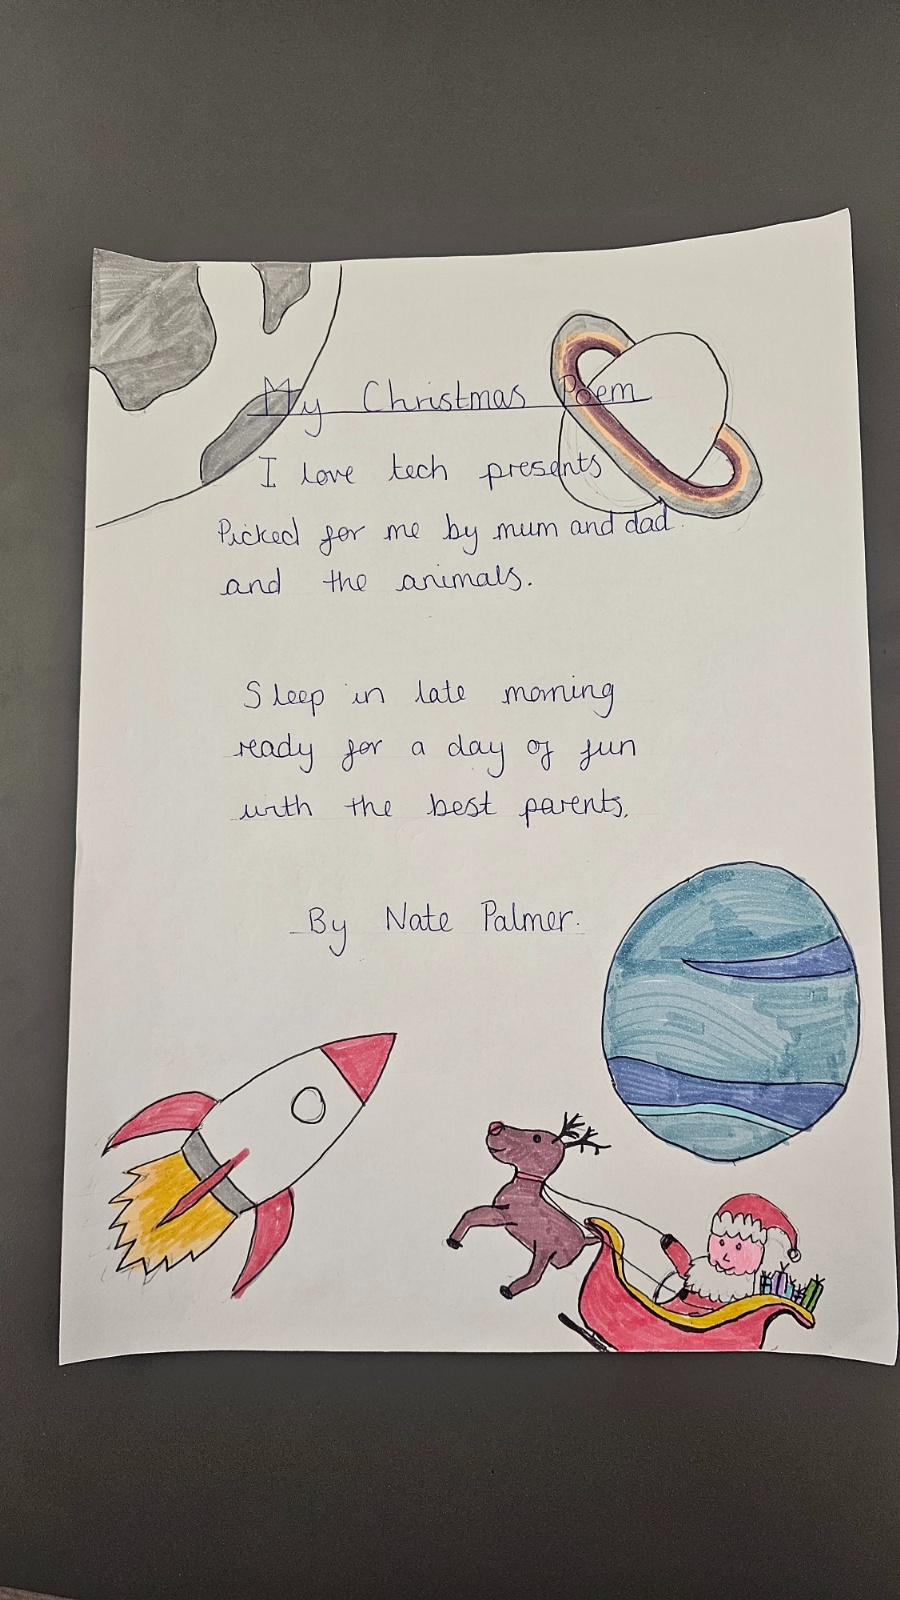 My Christmas Poem
I love tech presents
Picked for me by mum and dad.
and the animals.
Sleep in late morning
ready for a day of fun
with the best parents.
By Nate Palmer.